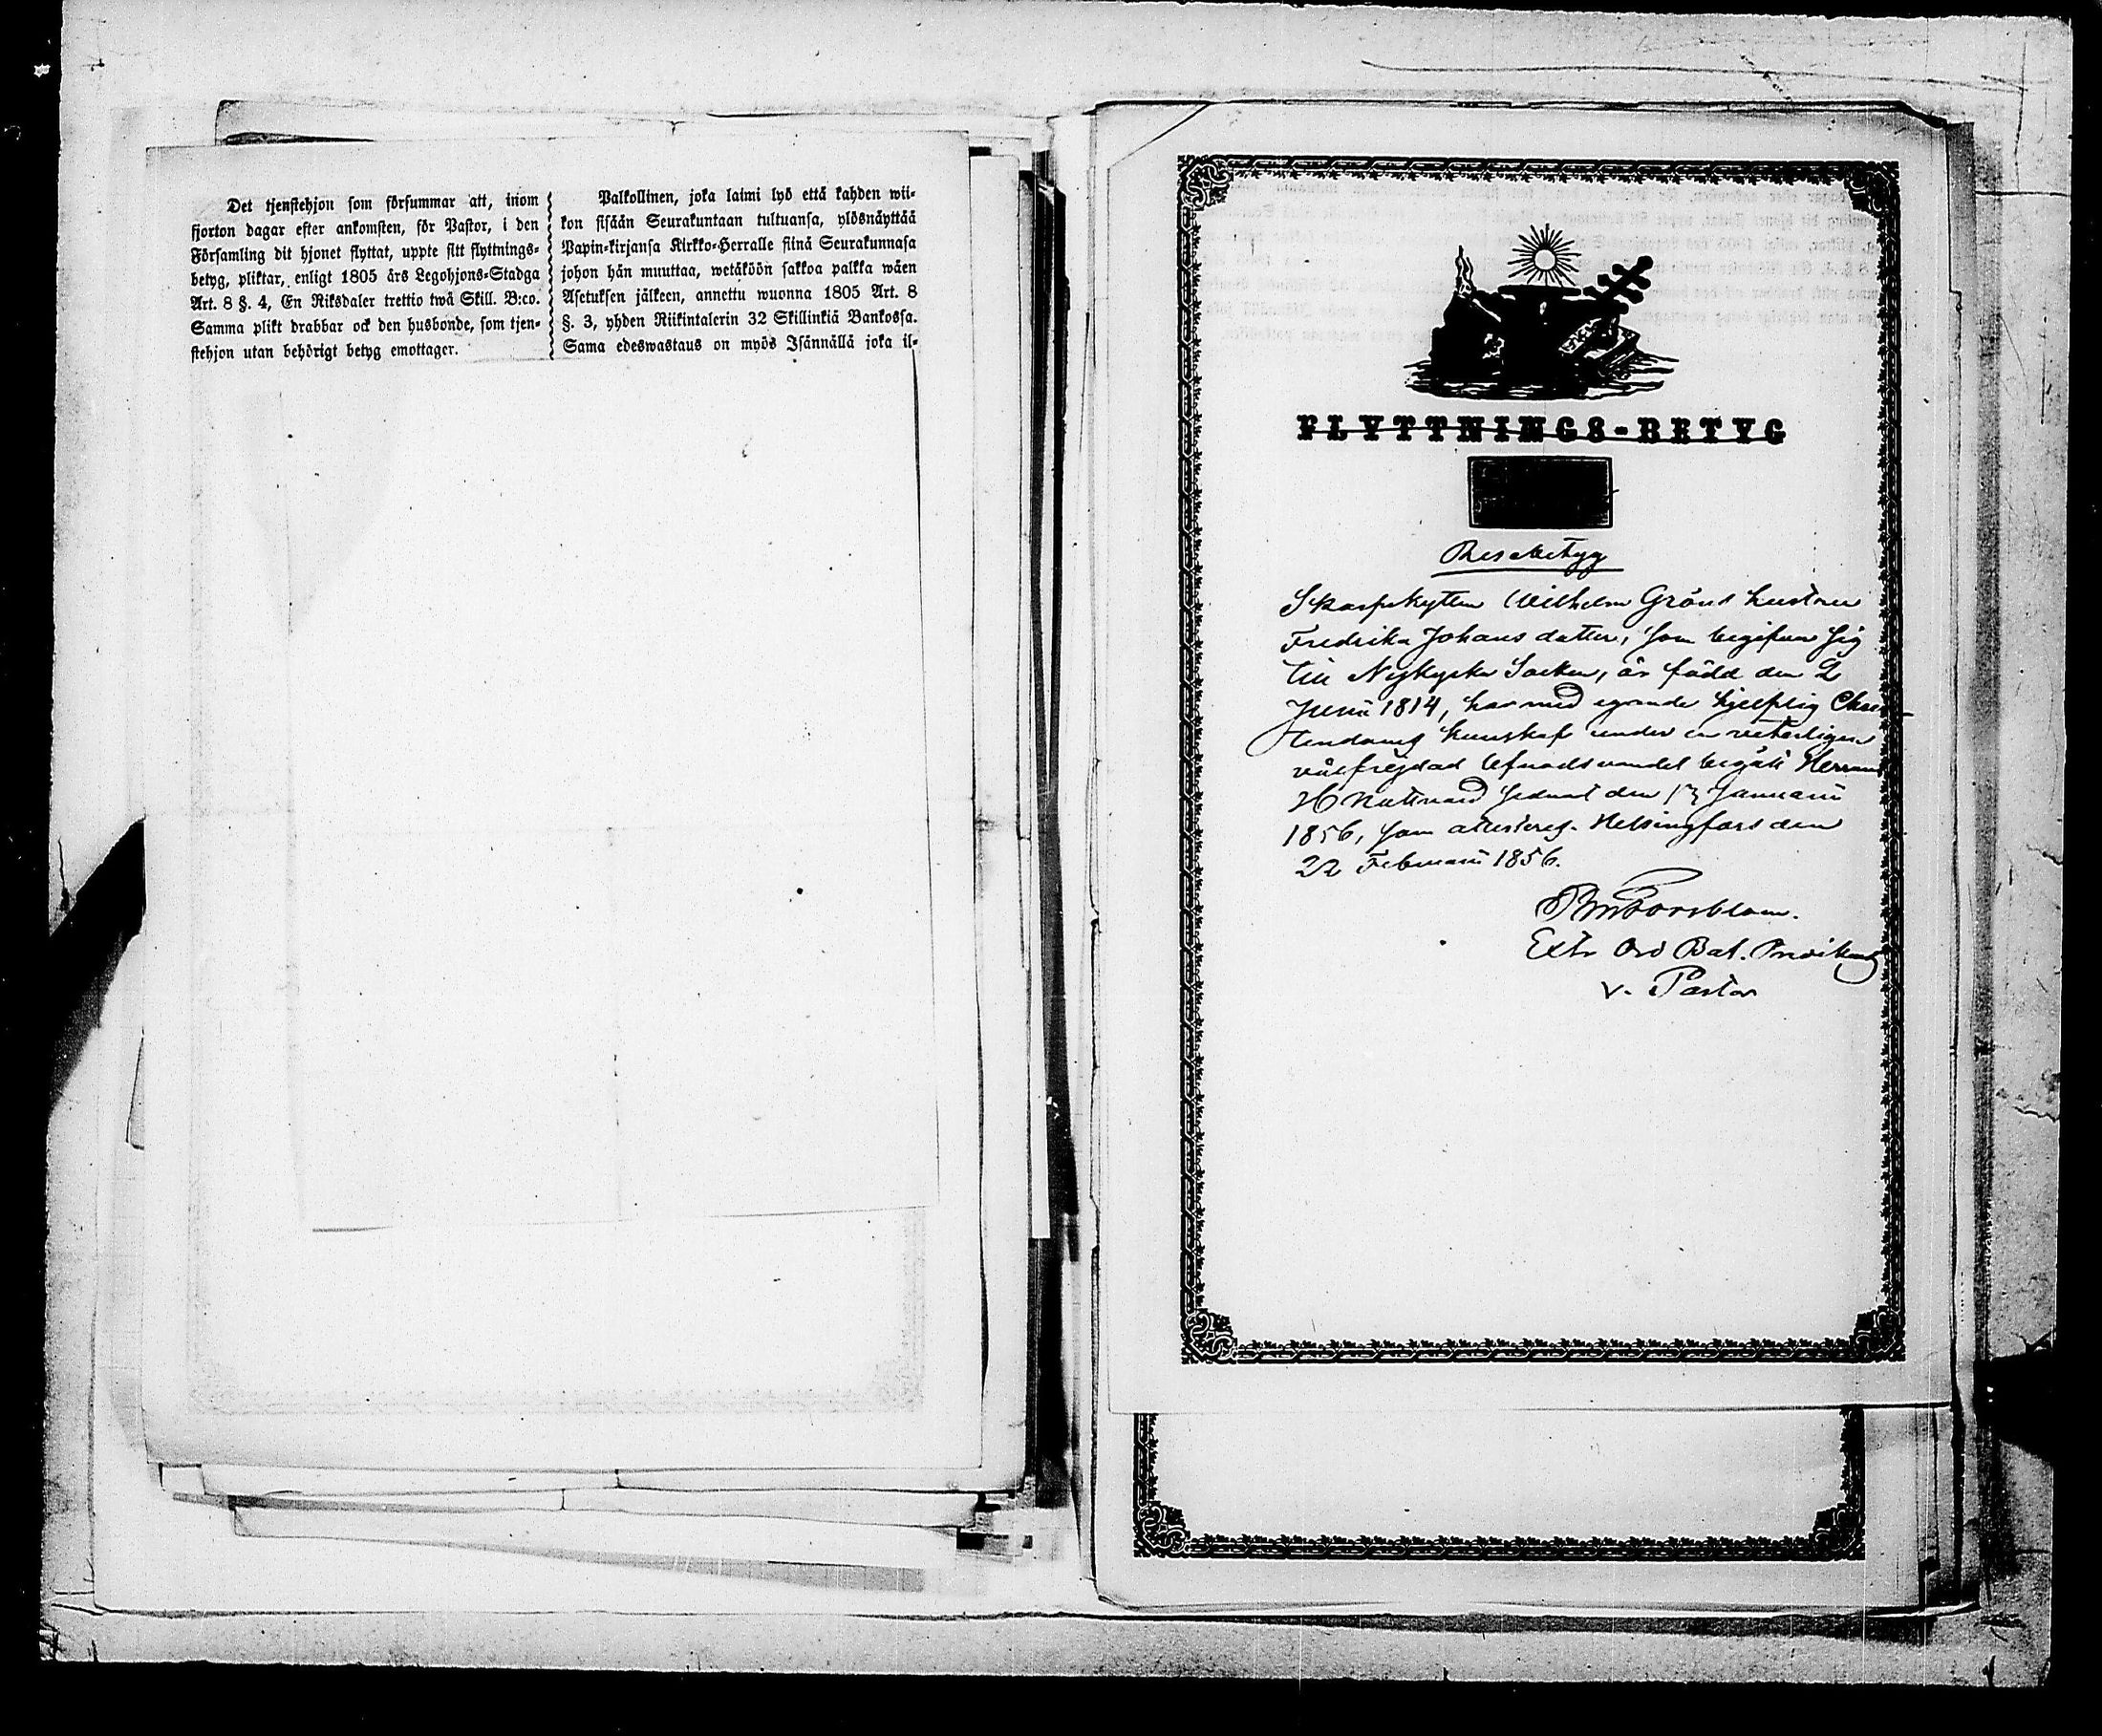 Det tjenstehjon som försummar att, inom
fjorton dagar efter ankomsten, för Pastor, i den
Församling dit hjonet flyttat, uppte sitt flyttnings-
betyg, pliktar, enligt 1805 års Legohjons-Stadga
Art. 8 §. 4, En Riksdaler trettio twå Skill. B:co.
Samma plikt drabbar ock den husbonde, som tjen-
stehjon utan behörigt betyg emottager.
Palkollinen, joka laimi lyö että kahden wii-
kon sisään Seurakuntaan tultuansa, ylösnäyttää
Papin-kirjansa Kirkko-Herralle siinä Seurakunnasa
johon hän muuttaa, wetäköön sakkoa palkka wäen
Asetuksen jälkeen, annettu wuonna 1805 Art. 8
§. 3, yhden Riikintalerin 32 Skillinkiä Bankossa.
Sama edeswastaus on myös Isännällä joka il-
FLYTTNINGS-BETYG
Resebetyg
Skarpskytten Wilhelm Gröns hustru
Fredrika Johans dotter, som begifver sig
till Nykyrko Socken, är född den 2
Junii 1814, har med egande hjelplig Chris-
tendoms kunskap under en
välfrejdad lefnadsvandel begått Herrans
H Nattvard sednast den 13 Januarii
1856, som attesteras. Helsingfors den
22 Februarii 1856.
Forsblom.
Extr Ord Bat. Predikant
v. Pastor